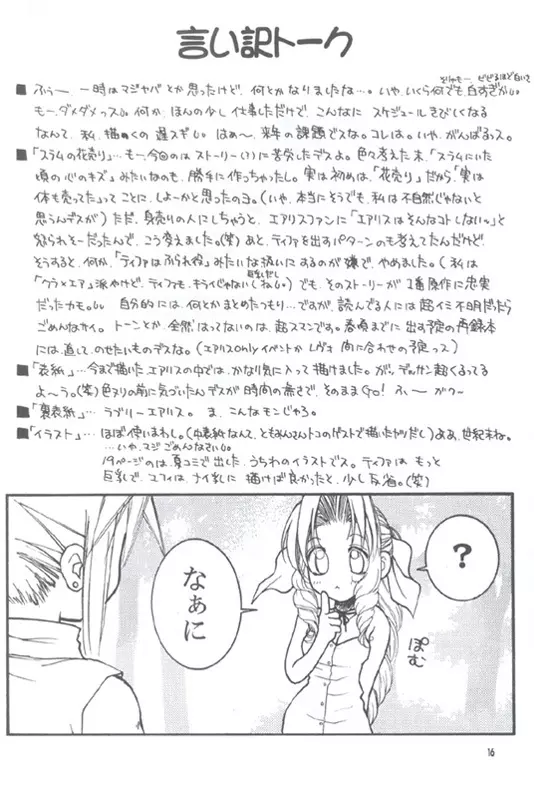 言い訳トーク
■ふぅ〜、一時はマジヤバとか思ったけど、何とかなりましたな…。いや、いくら何でも白すぎかい。
も一、ダメダメっス。何か、ほんの少し仕事しただけで、こんなに スケジュールきびしくなる
なんて、私、描くの遅スギい。はぁ〜、来年の課題でスな。コレは。いや、がんばるっス。
■「スラムの花売り」…も一、今回のは ストーリー(?)に苦労したデスよ。色々考えた末、「スラムにいた
頃の心のキズ」みたいなのも、勝手に作っちゃったし。実は初めは、「花売り」だから「実は
体も売ってた」ってことに、しよーかと思ったのヨ。(いや、本当にそうでも、私は不自然じゃないと
思うんデスが)ただ、身売りの人にしちゃうと、エアリスファンに「エアリスはそんなコトしないッ」と
怒られそーだったんで、こう考えました。(笑)あと、ティファを出すパターンのも考えてたんだけど、
そうすると、何か、「ティファはふられ役」みたいな扱いにするのが嫌で、やめました。(私は
「クラ×エア」派やけど、ティファも、キライじゃない)でも、そのストーリーが1番原作に忠実
だったカモ。自分的には、何とかまとめたつもり…ですが、読んでる人には超イミ不明だったら
ごめんなサイ。トーンとか、全然はってないのは、超スマンです。春頃までに出す予定の再録本
には、直して、のせたいものデスな。(エアリスonlyイベントか レヴォ 向に合わせの予定っス)
■「表紙」…今まで描いたエアリスの中では、かなり気に入って描けました。が、デッサン超くるってる
よ〜う。(笑)色ヌリの前に気づいたんデスが時間の無さで、そのままGo!
■「裏表紙」… ラブリーエアリス。ま、こんなモンじゃろ。
■「イラスト」… ほぼ使いまわし。
…いや、マジごめんなさい。
19ページのは、夏コミで出した、うちわのイラストでス。ティファは もっと
巨乳で、ユフィは、ナイ乳に 描けば良かったと、少し反省。(笑)
?
なぁに
ぽむ
16